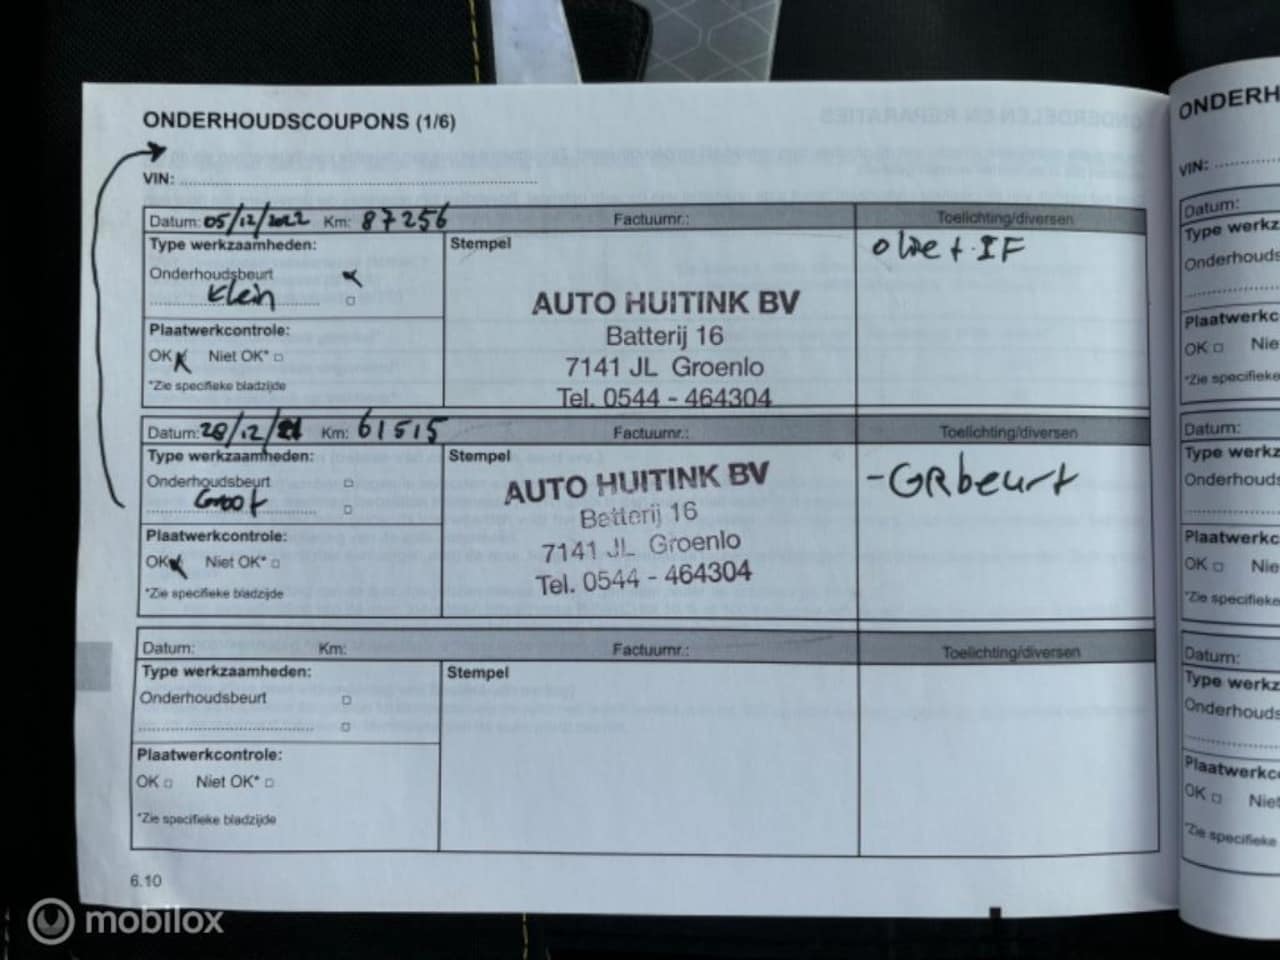 ONDERHOUDSCOUPONS (1/6)
VIN:
Datum: 05/12/2022 Km: 87256 Factuumr.: Toelichting/diversen
Type werkzaamheden:
Onderhoudsbeurt
Klein
Plaatwerkcontrole:
OK Niet OK*
*Zie specifieke bladzijde
Stempel
AUTO HUITINK BV
Batterij 16
7141 JL Groenlo
Tel. 0544 - 464304
olie + IF
Datum: 28/12/21 Km: 61515 Factuumr.: Toelichting/diversen
Type werkzaamheden:
Onderhoudsbeurt
Groot
Plaatwerkcontrole:
OK Niet OK*
*Zie specifieke bladzijde
Stempel
AUTO HUITINK BV
Batterij 16
7141 JL Groenlo
Tel. 0544 - 464304
-GRbeurt
Datum: Km: Factuumr.: Toelichting/diversen
Type werkzaamheden:
Onderhoudsbeurt
Plaatwerkcontrole:
OK Niet OK*
*Zie specifieke bladzijde
Stempel
6.10
ONDERH
VIN:
Datum:
Type werkz
Onderhouds
Plaatwerkc
OK Nie
*Zie specifieke
Datum:
Type werkz
Onderhouds
Plaatwerkc
OK Nie
*Zie specifieke
Datum:
Type werkz
Onderhouds
Plaatwerkc
OK Niet
*Zie specifieke
mobilox